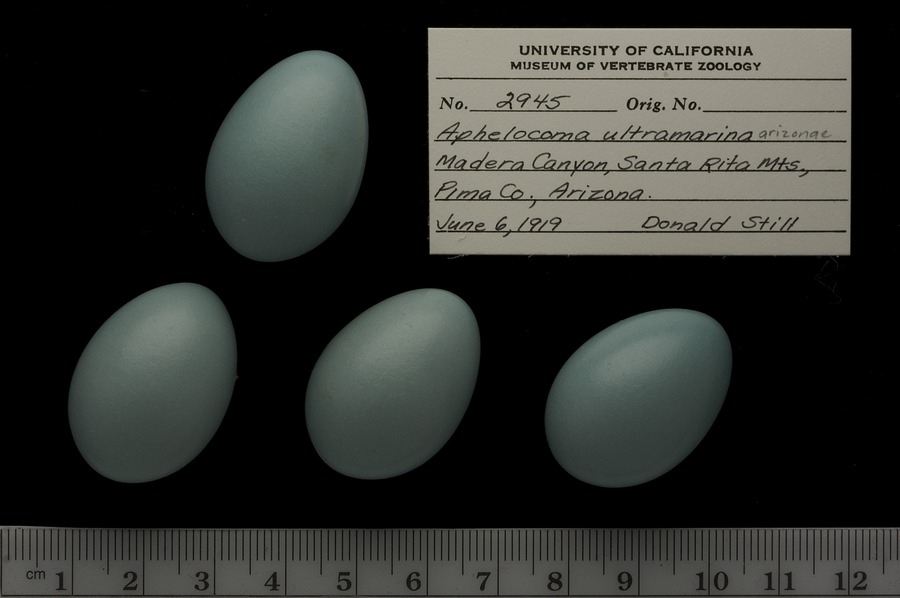 UNIVERSITY OF CALIFORNIA
MUSEUM OF VERTEBRATE ZOOLOGY
No. 2945 Orig. No.
Aphelocoma ultramarina arizonae
Madera Canyon, Santa Rita Mts.,
Pima Co., Arizona.
June 6, 1919 Donald Still
cm 1 2 3 4 5 6 7 8 9 10 11 12